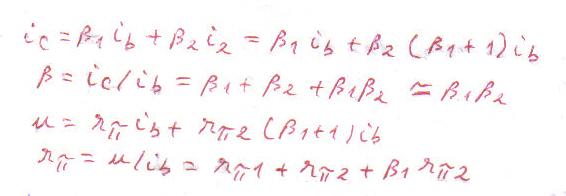 ic = β1 ib + β2 i2 = β1 ib + β2 (β1 + 1) ib
β = ic/ib = β1 + β2 + β1β2 ≃ β1β2
u = rπ ib + rπ2 (β1+1) ib
rπ = u/ib = rπ1 + rπ2 + β1 rπ2